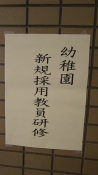 幼稚園
新規採用教員研修